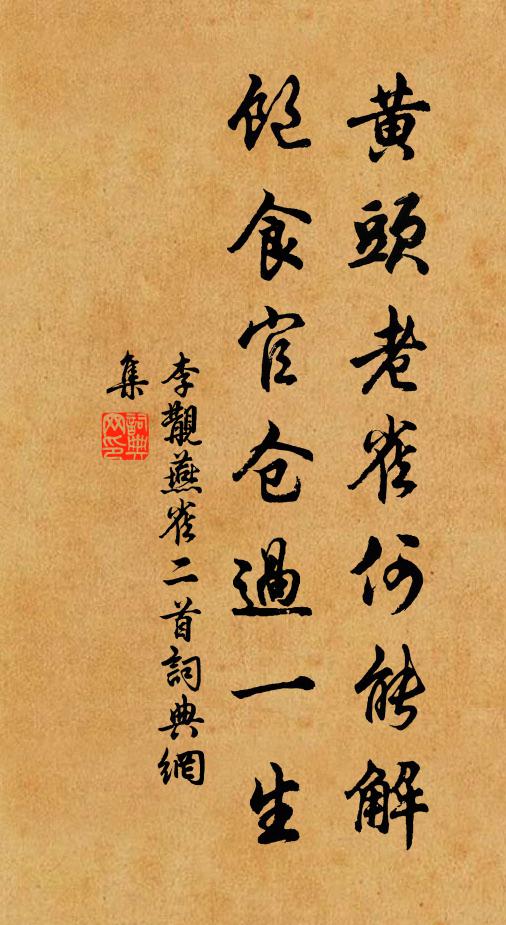 黃頭老雀何能解
飽食官仓過一生
李覯燕雀二首詞典網
集
詞典
网印